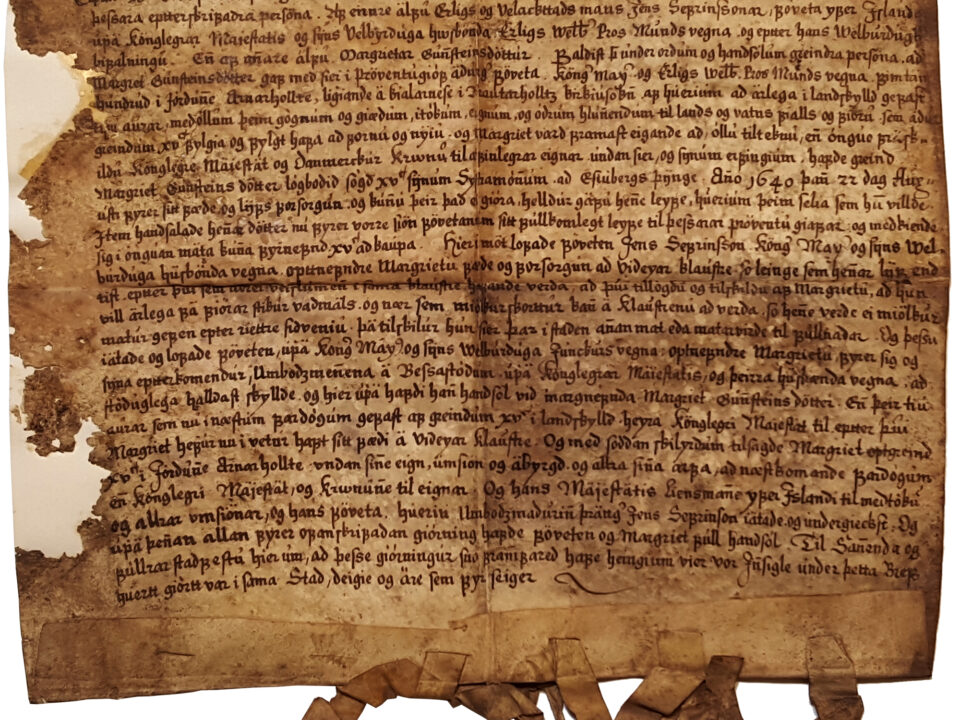 þessara epttershrifadra persona. Af einre älfu Erligs og Velacktads mans Jens Sefrinssonar, foveta yfer Jsland
upä Konglegrar Maiestatis og syns Velbyrduga hwsbonda, Erligs Welb. Pros Munds vegna og eptter hans Welburdugt
bifalningu. En af añare älfu Margrietar Gunsteinsdöttur. Valdist so under ordum og handsölum greindra persona, ad
Margret Gunsteinsdötter gaf med sier i Pröventugiöf ädur foveta, Kong May. og Erligs Welb. Pros Munds vegna, fimtän
hundrud i Jördune Arnarhollte, liggiande ä kialarnese i Gautarholltz kirkiusokn af huerium ad ärlega i landskylld gefast
tiu aurar, med öllum þeim gögnum og giædum, itökum, eignum, og ödrum hlunendum til lands og vatns fialls og fiöru sem ädur
greindum xv fylgia og fylgt hafa ad fornu og nyiu og Margriet vard framast eigande ad, öllu tilteknu, en önguo
ildu Konglegre Mäiestät og Danmerckur Krwnu til æfinlegrar eignar, undan sier, og synum erfingium, hafde greind
Margriet Gunsteins dötter lögbodid sögd xv synum Systramönum ad Esiubergs þynge. Año 1640 þañ 22 dag Aug-
usti fyrer sitt fæde og lyfs forsorgun og kunu þeir þad ei giöra, helldur gäfu heñe leyfe, huerium þeim selia sem hu villde.
Jtem handsalade heñar dötter nu fyrer vorre siön fovetanum sitt fullkomlegt leyfe til þessarar pröventu giafar, og medkiende
sig i önguan mäta kuna fyrnefnd xv ad kaupa. Hier i möt lofade foveten Jens Sefrinsson Kong May og syns Wel-
burduga husbonda vegna, opttnefndre Margrietu fæde og forsorgun ad Videyar klaustre, so leinge sem heñar lyf end
ist, eptter þui sem i sama klaustre verda, ad þui tillögdu og tilskildu af Margrietu, ad hun
vill ärlega fä fiörar stikur vadmäls, og nær sem miölkurskortur kañ ä Klaustrenu ad verda, so heñe verde ei miölkur
matur gefen epter riettre sidveniu, þä tilskilur hun sier þar i staden añan mat eda matarvirde til fullnadar. Og þessu
iätade og lofade foveten, upä Kong May og syns Welburduga Junckurs vegna, opttnefndre Margrietu, fyrer sig og
syna eptterkomendur, Umbodzmeñena ä Bessastödum, upä Konglegrar Mäiestatis, og þeirra husbænda vegna, ad
stöduglega halldast skyllde, og hier upä hafdi hañ handsöl vid margnefnda Margriet Gunsteins dötter. En þeir tiu
aurar sem nu i næstum fardögum gefast af greindum xv i landskylld heyra Konglegri Maiestät til eptter þui
Margriet hefur nu i vetur haft sitt fædi ä Videyar Klaustre. Og med soddan skilyrdum tilsagde Margriet optgreind
xv Jördune Arnarhollte undan sine eign, umsion og äbyrgd og allra siña arfa, ad næstkomande fardögum
en Konglegri Mäjestät, og Krwnune til eignar. Og hans Mäjestätis Liensmane yfer Jslandi til medtöku
og allrar umsionar, og hans foveta, hueriu Umbodzmadurin fräng Jens Sefrinson iätade og undergieckst. Og
upä þeñan allan fyrer ofanskrifadan giörning hafde foveten og Margriet full handsöl. Til Sañenda og
fullrar stadfestu hier um, ad þesse giörningur suo framfared hafe heingium vier vor Jnsigle under þetta Bref
huertt giörtt var i sama Stad, deigie og äre sem fyr seiger